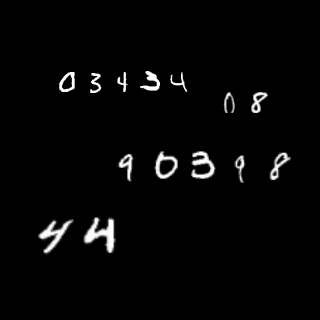 03434
08
90398
44